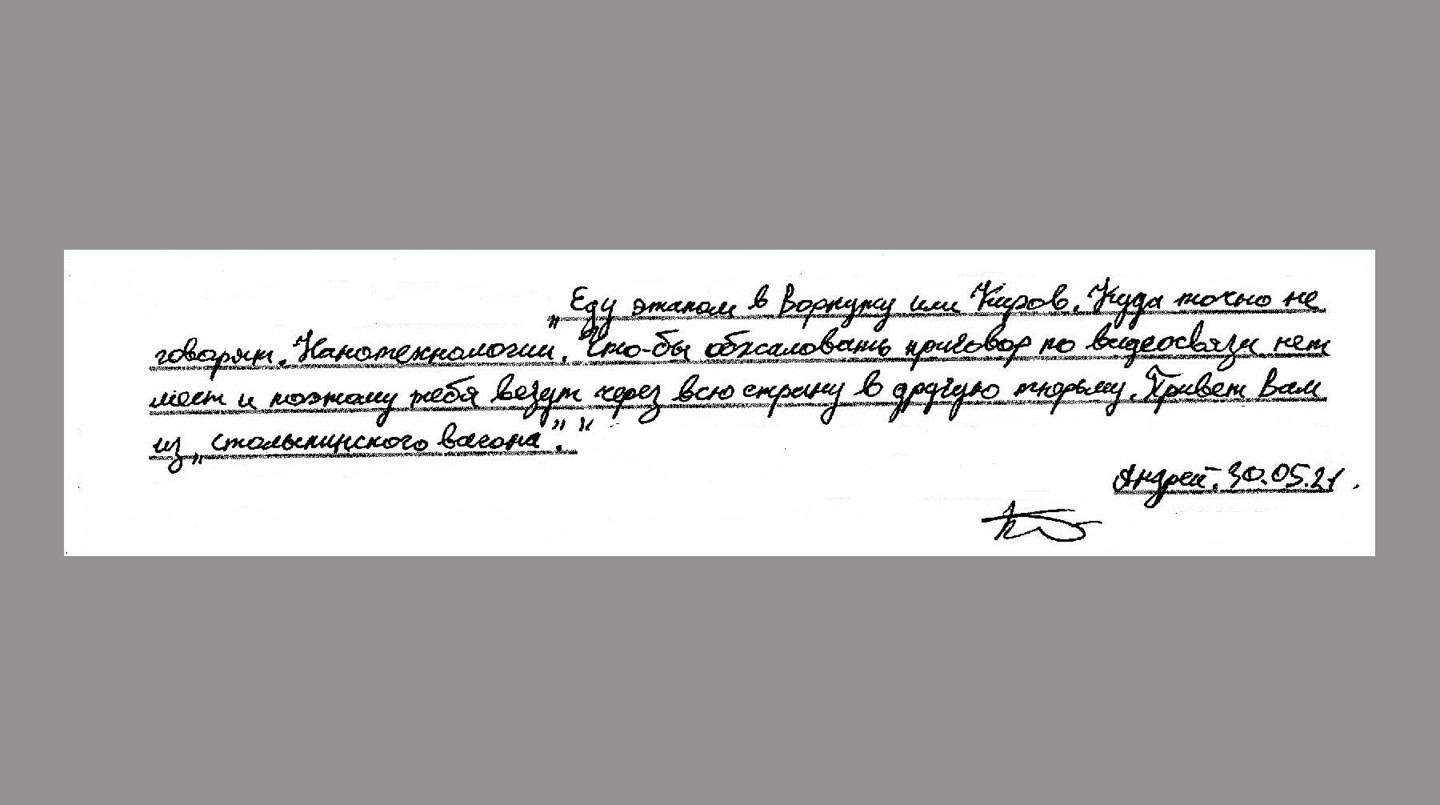 „Еду этапом в Воркуту или Киров. Куда точно не
говорят. Нанотехнологии. Что-бы обжаловать приговор по видеосвязи нет
мест и поэтому тебя везут через всю страну в другую тюрьму. Привет Вам
из „столыпинского вагона”.“
Андрей. 30.05.21.